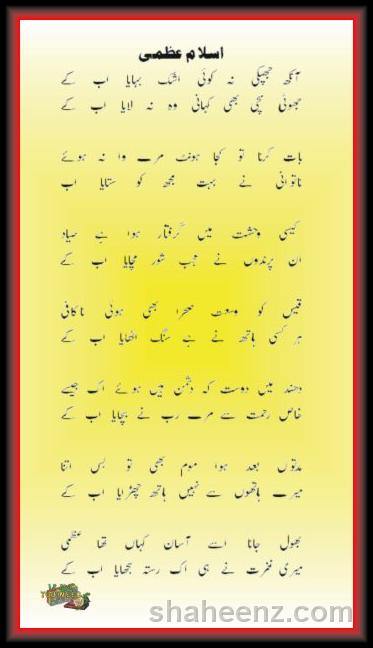 اسلام عظمی
آنکھ جھپکی نہ کوئی اشک بہایا اب کے
جھوٹی سچی بھی کہانی وہ نہ لایا اب کے
بات کرنا تو کجا ہونٹ مرے وا نہ ہوئے
ناتوانی نے بہت مجھ کو ستایا اب
کیسی وحشت میں گرفتار ہوا ہے صیاد
ان پرندوں نے عجب شور مچایا اب کے
قیس کو وسعت صحرا بھی ہوئی ناکافی
ہر کسی ہاتھ نے ہے سنگ اٹھایا اب کے
دھند میں دوست کہ دشمن ہیں ہوئے اک جیسے
خاص رحمت سے مرے رب نے بچایا اب کے
مدتوں بعد ہوا موم بھی تو بس اتنا
میرے ہاتھوں سے نہیں ہاتھ چھڑایا اب کے
بھول جانا اسے آسان کہاں تھا عظمی
میری نفرت نے ہی اک رستہ سجھایا اب کے
shaheenz.com